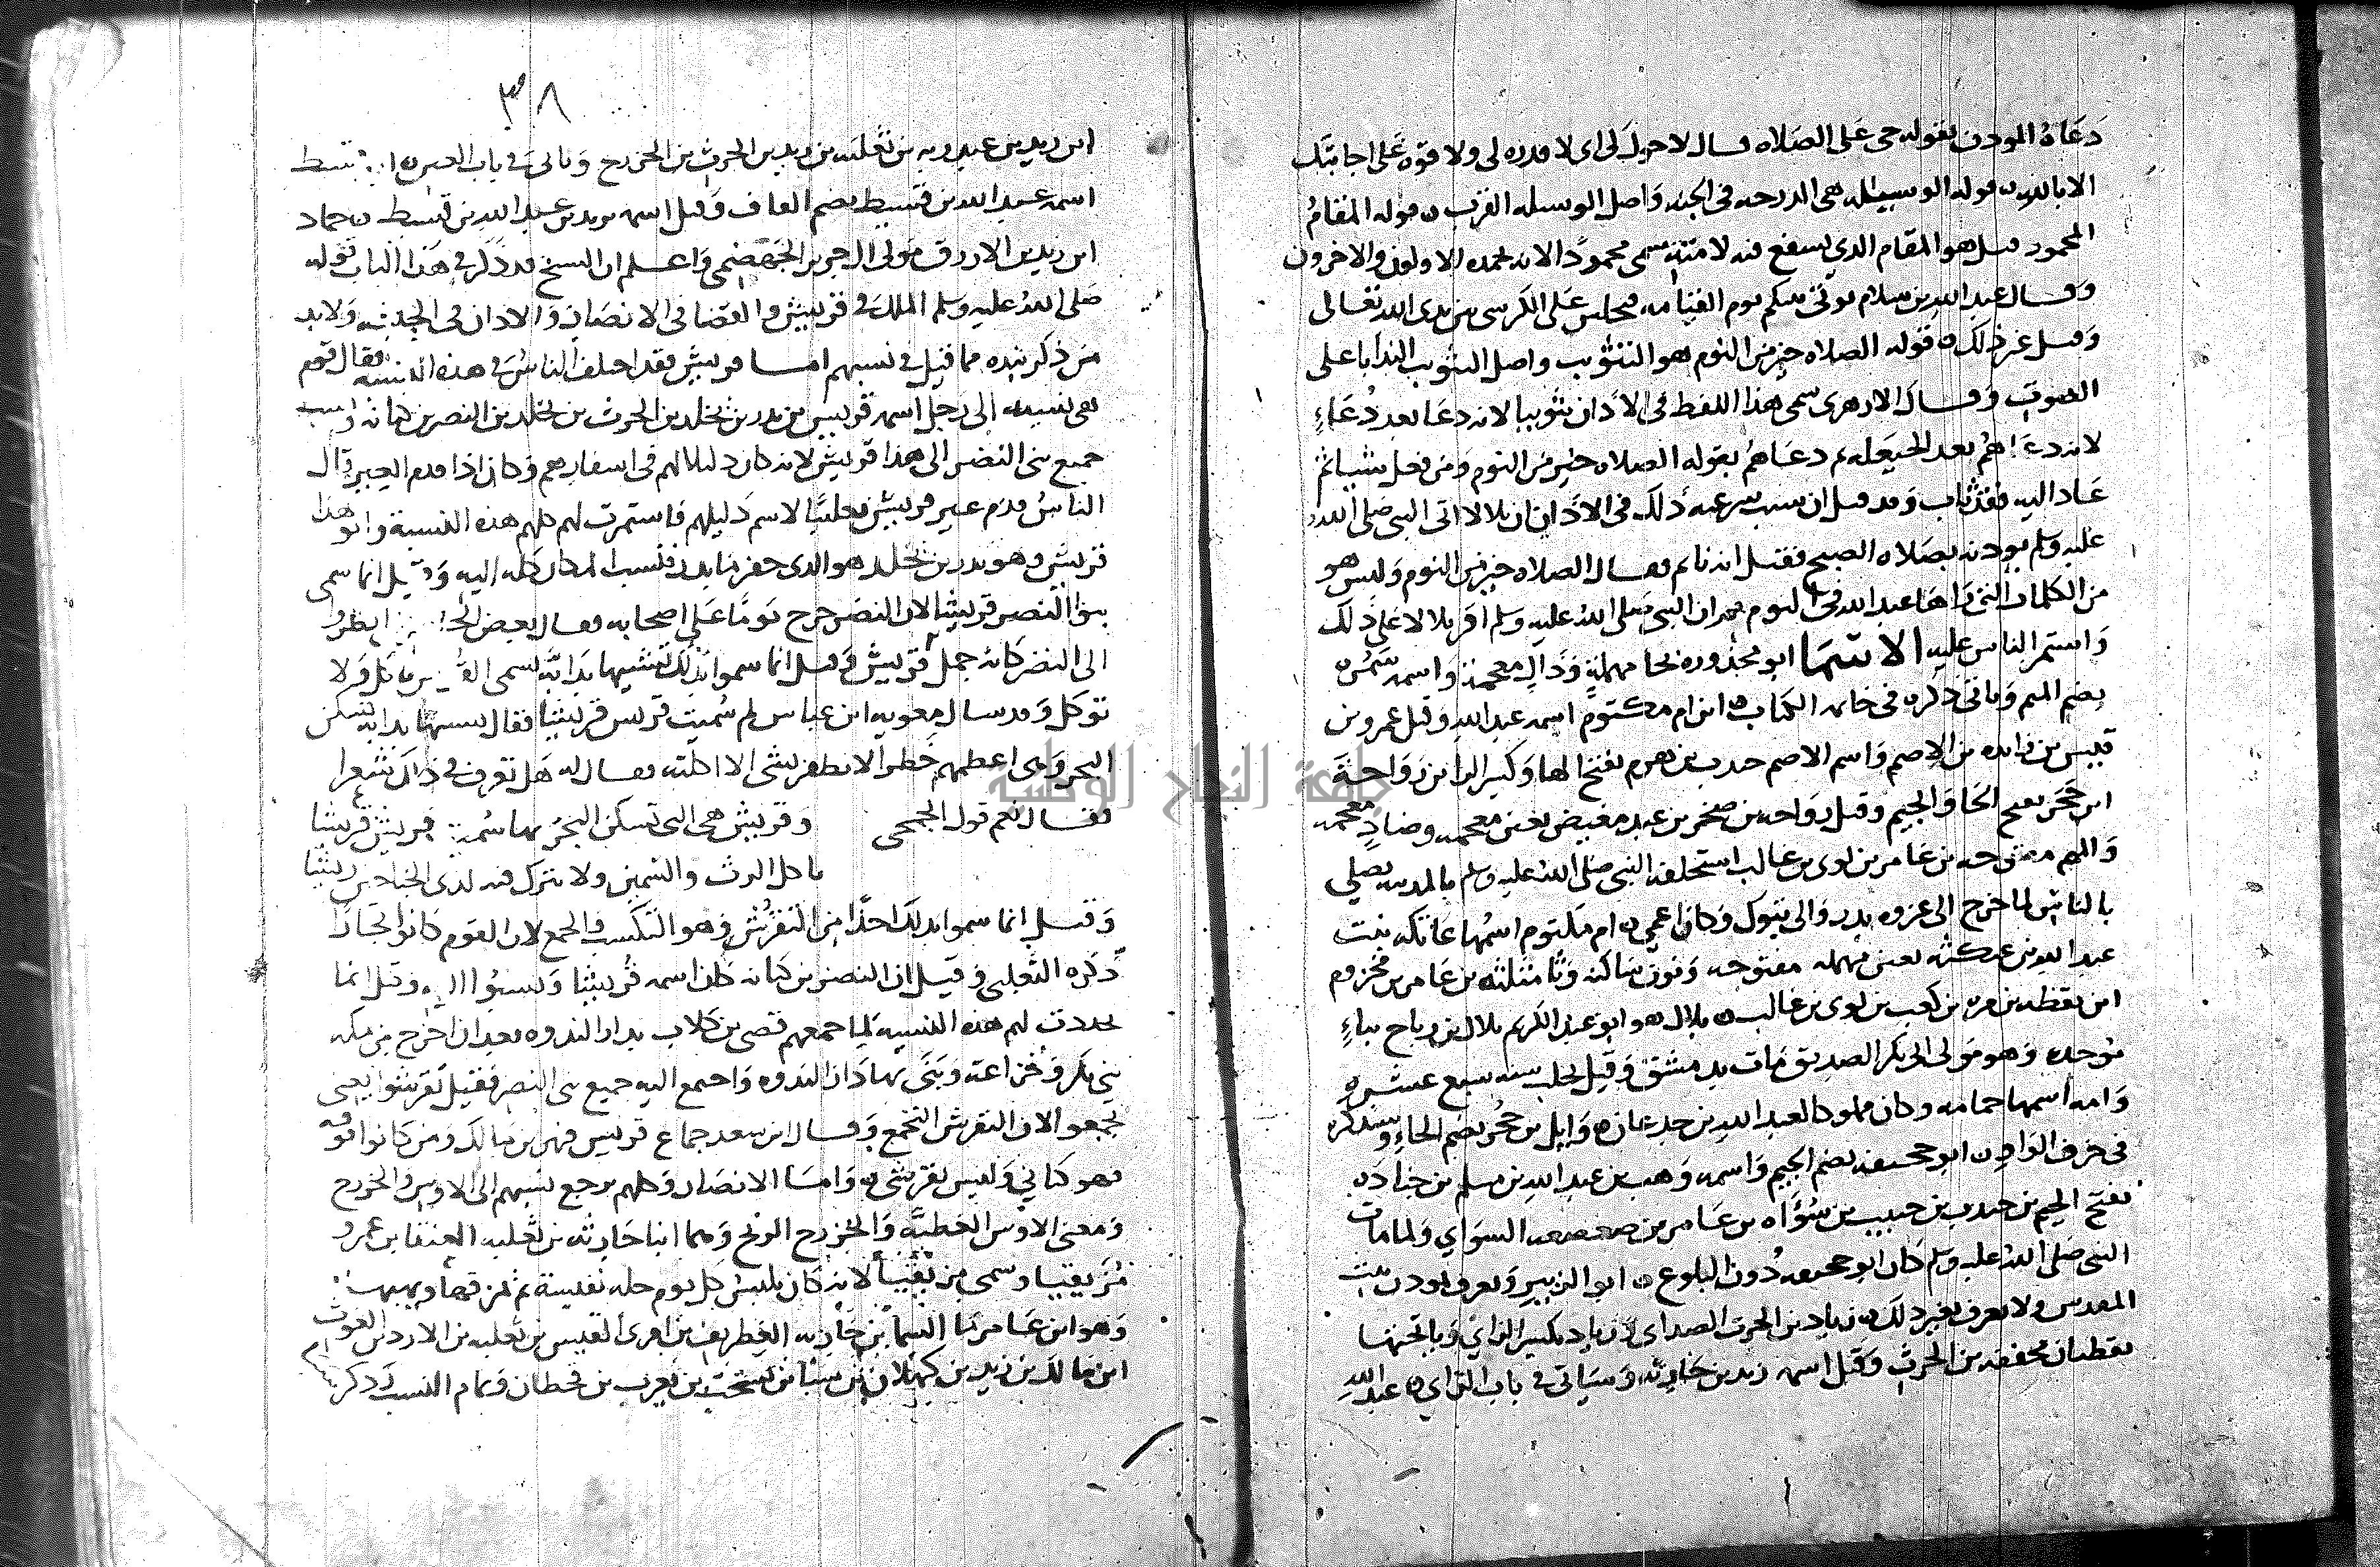 دعاه المودن بقوله حى على الصلاه فقال لا حول لى اى لا قدره لى ولا قوه على اجابتك
الا بالله ن قوله الوسيله هى الدرجه فى الجنه واصل الوسيله القرب ن قوله المقام
المحمود قيل هو المقام الذي يشفع فيه لامته سمى محمودا لانه يحمده الاولون والاخرون
وقال عبد الله بن سلام يوتى بنبيكم يوم القيامه فيجلس على الكرسى بين يدى الله تعالى
وقيل غير ذلك ن قوله الصلاه خير من النوم هو التثويب واصل التثويب الندا باعلى
الصوت وقال الازهرى سمى هذا اللفظ فى الاذان تثويبا لانه دعا بعد دعاء
لانه دعاهم بعد الحيعله ثم دعاهم بقوله الصلاه خير من النوم ومن فعل شيا ثم
عاد اليه فقد ثاب وقد قيل ان سبب شرعيه ذلك فى الاذان ان بلالا اتى النبى صلى الله
عليه وسلم يوذنه بصلاه الصبح فقيل انه نائم فقال الصلاه خير من النوم وليس هو
من الكلمات التى راها عبد الله فى النوم غير ان النبى صلى الله عليه وسلم اقر بلالا على ذلك
واستمر الناس عليه الاسما ابو محذوره بحا مهملة وذال معجمة واسمه سمره
بضم الميم وياتى ذكره فى خاتمه الكتاب ن ابن ام مكتوم اسمه عبد الله وقيل عمرو بن
قيس بن زايده بن الاصم واسم الاصم جندب بن هرم بفتح الها وكسر الرا بن رواحة
ابن حجر بفتح الحا والجيم وقيل رواحه بن صخر بن عبد مغيض بغين معجمه وضاد معجمه
والميم مفتوحه بن عامر بن لوى بن غالب استخلفه النبى صلى الله عليه وسلم بالمدينه يصلي
بالناس لما خرج الى غزوه بدر والى تبوك وكان اعمى ن ام مكتوم اسمها عاتكه بنت
عبد الله بن عنكثه بعين مهمله مفتوحه ونون ساكنه وثا مثلثه بن عامر بن مخزوم
ابن يقظه بن مره بن كعب بن لوى بن غالب ن بلال هو ابو عبد الكريم بلال بن رباح بباء
موحده وهو مولى ابى بكر الصديق مات بدمشق وقيل بحلب سنه سبع عشره
وامه اسمها حمامه وكان مملوكا لعبد الله بن جدعان ن وايل بن حجر بضم الحاء وسنذكره
فى حرف الواو ن ابو جحيفه بضم الجيم واسمه وهب بن عبد الله بن مسلم بن جناده
بفتح الجيم بن جندب بن حبيب بن سواه بن عامر بن صعصعه السوائي ولما مات
النبى صلى الله عليه وسلم كان ابو جحيفه دون البلوغ ن ابو الزبير ويعرف بموذن بيت
المقدس ولا يعرف بغير ذلك ن زياد بن الحرث الصداى زياد بكسر الزاي وبا تحتها
نقطتان مخففه بن الحرث وقيل اسمه زيد بن حارثه وسياتى فى باب الزاي ن عبد الله
٣٨
ابن زيد بن عبد ربه بن ثعلبه بن زيد بن الحرث بن الخزرج وياتى فى باب العين ن قسيط
اسمه عبد الله بن قسيط بضم القاف وقيل اسمه يزيد بن عبد الله بن قسيط ن حماد
ابن زيد بن الازرق مولى ال جرير الجهضمى واعلم ان الشيخ قد ذكر فى هذا الباب قوله
صلى الله عليه وسلم الملك فى قريش والقضا فى الانصار والاذان فى الحبشه ولا بد
من ذكر نبذه مما قيل فى نسبهم اما قريش فقد اختلف الناس فى هذه النسبه فقال قوم
هى نسبه الى رجل اسمه قريش بن بدر بن يخلد بن الحرث بن يخلد بن النضر بن كنانه ونسب
جميع بنى النضر الى هذا قريش لانه كان دليلا لهم فى اسفارهم وكان اذا قدم العير قال
الناس قدم عير قريش تغليبا لاسم دليلهم فاستمرت لهم كلهم هذه النسبة وابو هذا
قريش وهو بدر بن يخلد هو الذى حفر ما بدر فنسب المكان كله اليه وقيل انما سمى
بنوا النضر قريشا لان النضر خرج يوما على اصحابه فقال بعض انظروا
الى النضر كانه جمل قريش وقيل انما سموا بذلك تشبيها بدابة تسمى القرش تاكل ولا
توكل وقد سال معويه ابن عباس لم سميت قريش قريشا فقال بدابه تسكن
البحر وهى اعظمهم خطرا لا تظفر بشى الا اكلته فقال له هل تعرف فى ذلك شعرا
فقال نعم قول الجمحى وقريش هى التى تسكن البحر بها سميت قريش قريشا
تاكل الرث والسمين ولا تترك فيه لذى الجناحين ريشا
وقيل انما سموا بذلك اخذا من التقرش وهو التكسب والجمع لان القوم كانوا تجارا
ذكره الثعلبى وقيل ان النضر بن كنانه كان اسمه قريشا ونسبوا اليه وقيل انما
تجددت لهم هذه النسبه لما جمعهم قصى بن كلاب بدار الندوه بعد ان اخرج من مكه
بنى بكر وخزاعه وبنى بها دار الندوه واجتمع اليه جميع بنى النضر فقيل تقرشوا يعنى
تجمعوا لان التقرش التجمع وقال ابن سعد جماع قريش فهر بن مالك ومن كانوا فوقه
فهو كنانى وليس بقرشى ن واما الانصار وكلهم يرجع نسبهم الى الاوس والخزرج
ومعنى الاوس العطيه والخزرج الريح وهما ابنا حارثه بن ثعلبه العنقا بن عمرو
مزيقيا وسمى مزيقيا لانه كان يلبس كل يوم حله نفيسة ثم يمزقها ويهبها
وهو ابن عامر ما السما بن حارثه الغطريف بن امرئ القيس بن ثعلبه بن الازد بن الغوث
ابن مالك بن زيد بن كهلان بن سبا بن يشجب بن يعرب بن قحطان وتمام النسب ذكر